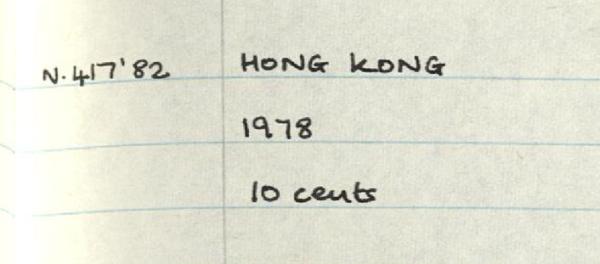 N.417'82 HONG KONG
1978
10 cents